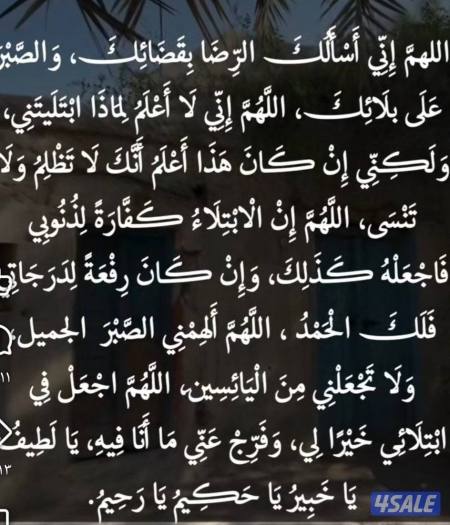 اللهمَّ إِنِّي أَسْأَلُكَ الرِّضَا بِقَضَائِكَ، وَالصَّبْرَ
عَلَى بلَائِكَ، اللَّهُمَّ إِنِّي لَا أَعْلَمُ لِمَاذَا ابْتَلَيتَنِي،
وَلَكِنِّي إِنْ كَانَ هَذَا أَعْلَمُ أَنَّكَ لَا تَظْلِمُ وَلَا
تَنْسَى، اللَّهُمَّ إِنْ الْابْتِلَاءُ كَفَّارَةً لِذُنُوبِي
فَاجْعَلْهُ كَذَلِكَ، وَإِنْ كَانَ رِفْعَةً لِدَرَجَاتِي
فَلَكَ الْحَمْدُ ، اللَّهُمَّ أَلْهِمْنِي الصَّبْرَ الجميل،
وَلَا تَجْعَلْنِي مِنَ الْيَائِسِين، اللَّهُمَّ اجْعَلْ فِي
١١
ابْتِلَائِي خَيْرًا لِي، وَفَرِّجْ عَنِّي مَا أَنَا فِيهِ، يَا لَطِيفُ
١٣
يَا خَبِيرُ يَا حَكِيمُ يَا رَحِيمُ.
4SALE